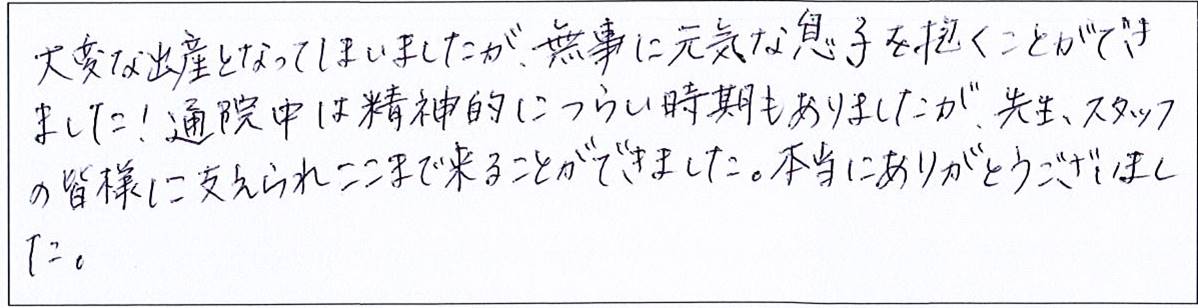 大変な出産となってしまいましたが、無事に元気な息子を抱くことができ
ました！通院中は精神的につらい時期もありましたが、先生、スタッフ
の皆様に支えられここまで来ることができました。本当にありがとうございまし
た。